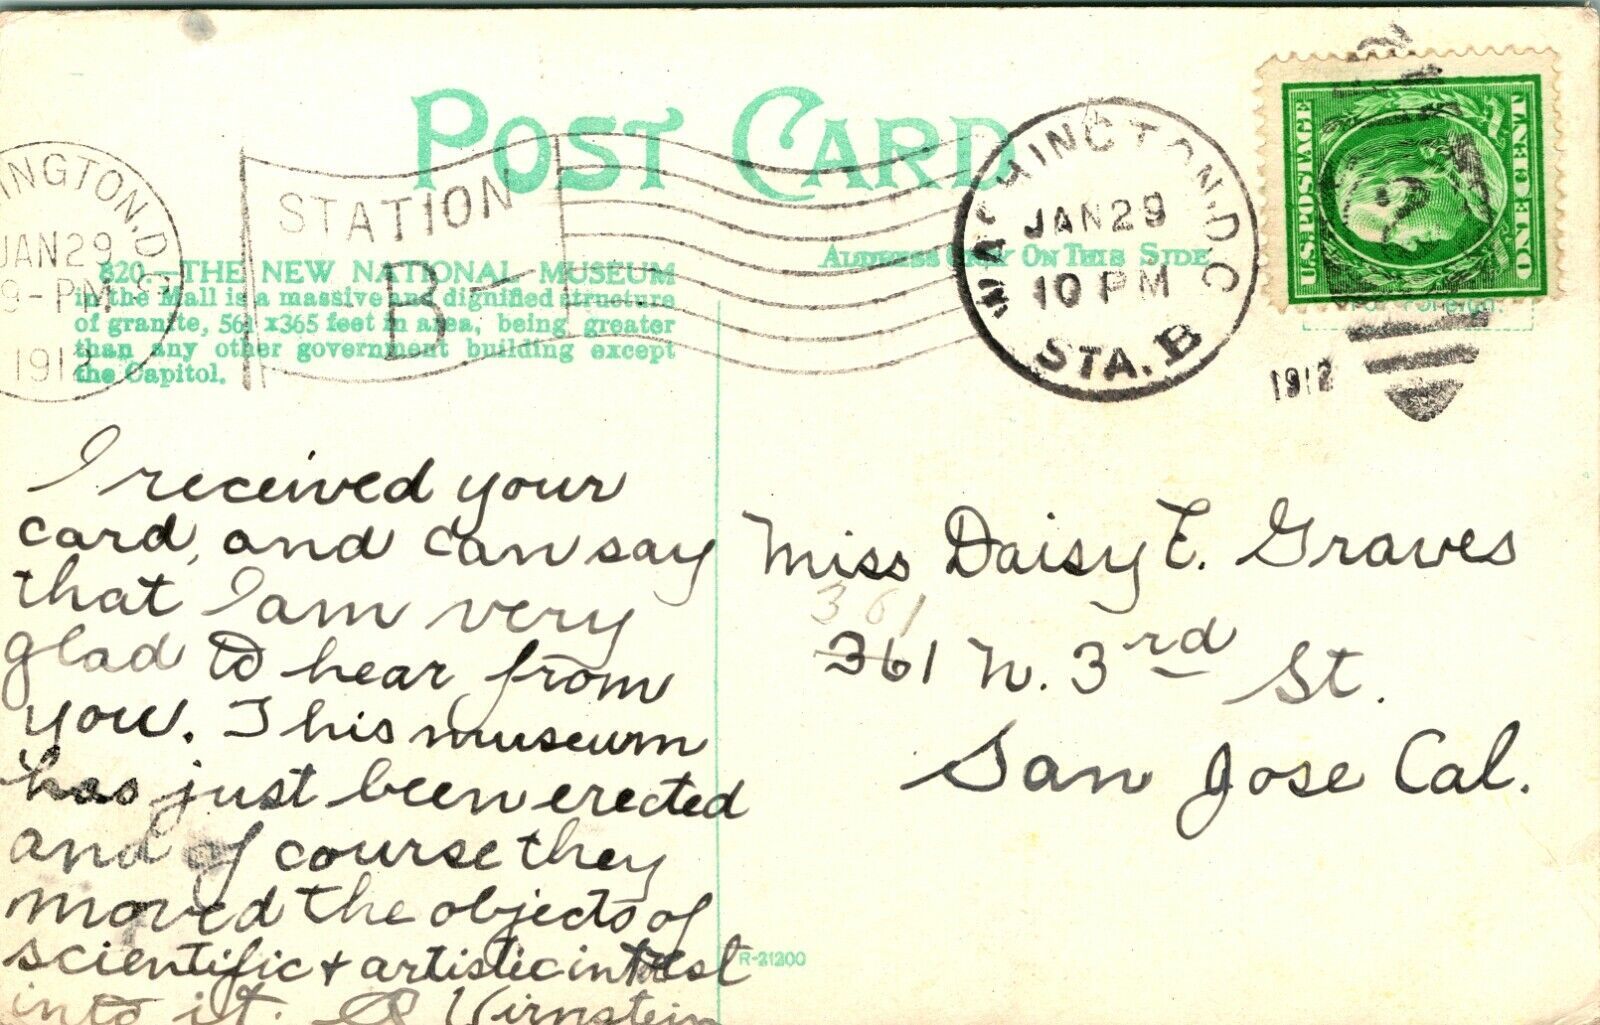 POST CARD
ADDRESS ONLY ON THIS SIDE
INGTON, D.C.
JAN 29
9-PM
1912
STATION
B
WASHINGTON, D.C.
JAN 29
10 PM
STA. B
1912
U.S. POSTAGE
ONE CENT
820.—THE NEW NATIONAL MUSEUM
in the Mall is a massive and dignified structure
of granite, 561 x365 feet in area, being greater
than any other government building except
the Capitol.
I received your
card, and can say
that I am very
glad to hear from
you. This museum
has just been erected
and of course they
moved the objects of
scientific + artistic interest
into it.
Miss Daisy E. Graves
361
361 N. 3rd St.
San Jose Cal.
R-21200